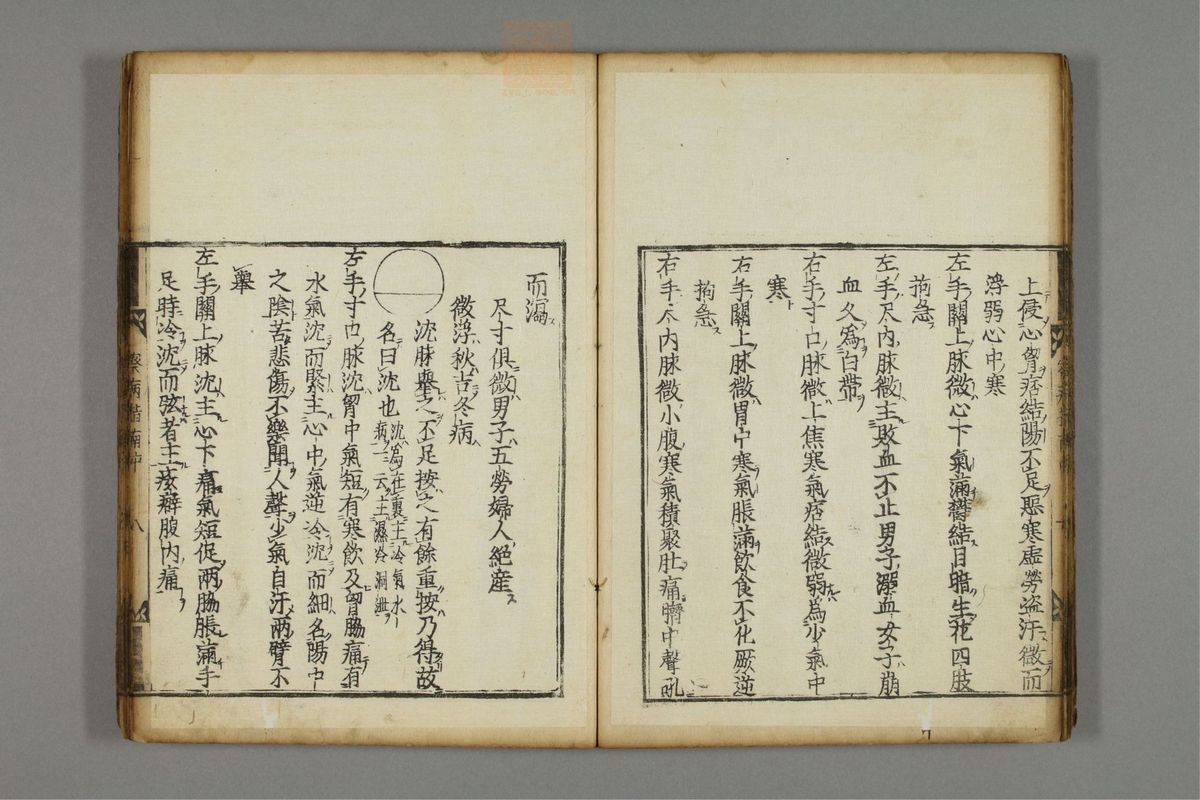 上侵心胷痞結陽不足惡寒虚勞盗汗微而
浮弱心中寒
左手關上脉微心下氣滿欝結目暗生花四肢
拘急
左手尺内脉微主敗血不止男子溺血女子崩
血久爲白帯
右手寸口脉微上焦寒氣痞結微弱爲少氣中
寒
右手關上脉微胃中寒氣脹滿飲食不化厥逆
拘急
右手尺内脉微小腹寒氣積聚肚痛臍中聲吼
而瀉
尺寸俱微男子五勞婦人絶産
微浮秋吉冬病
沈脉舉之不足按之有餘重按乃得故
名曰沈也
沈爲在裏主冷氣水
病一云主濕冷洞泄
左手寸口脉沈胷中氣短有寒飲及胷脇痛有
水氣沈而緊主心中氣逆冷沈而細名陽中
之陰苦悲傷不樂聞人聲少氣自汗兩臂不
舉
左手關上脉沈主心下痛氣短促兩脇脹滿手
足時冷沈而弦者主痃癖腹内痛
察病指南中
八